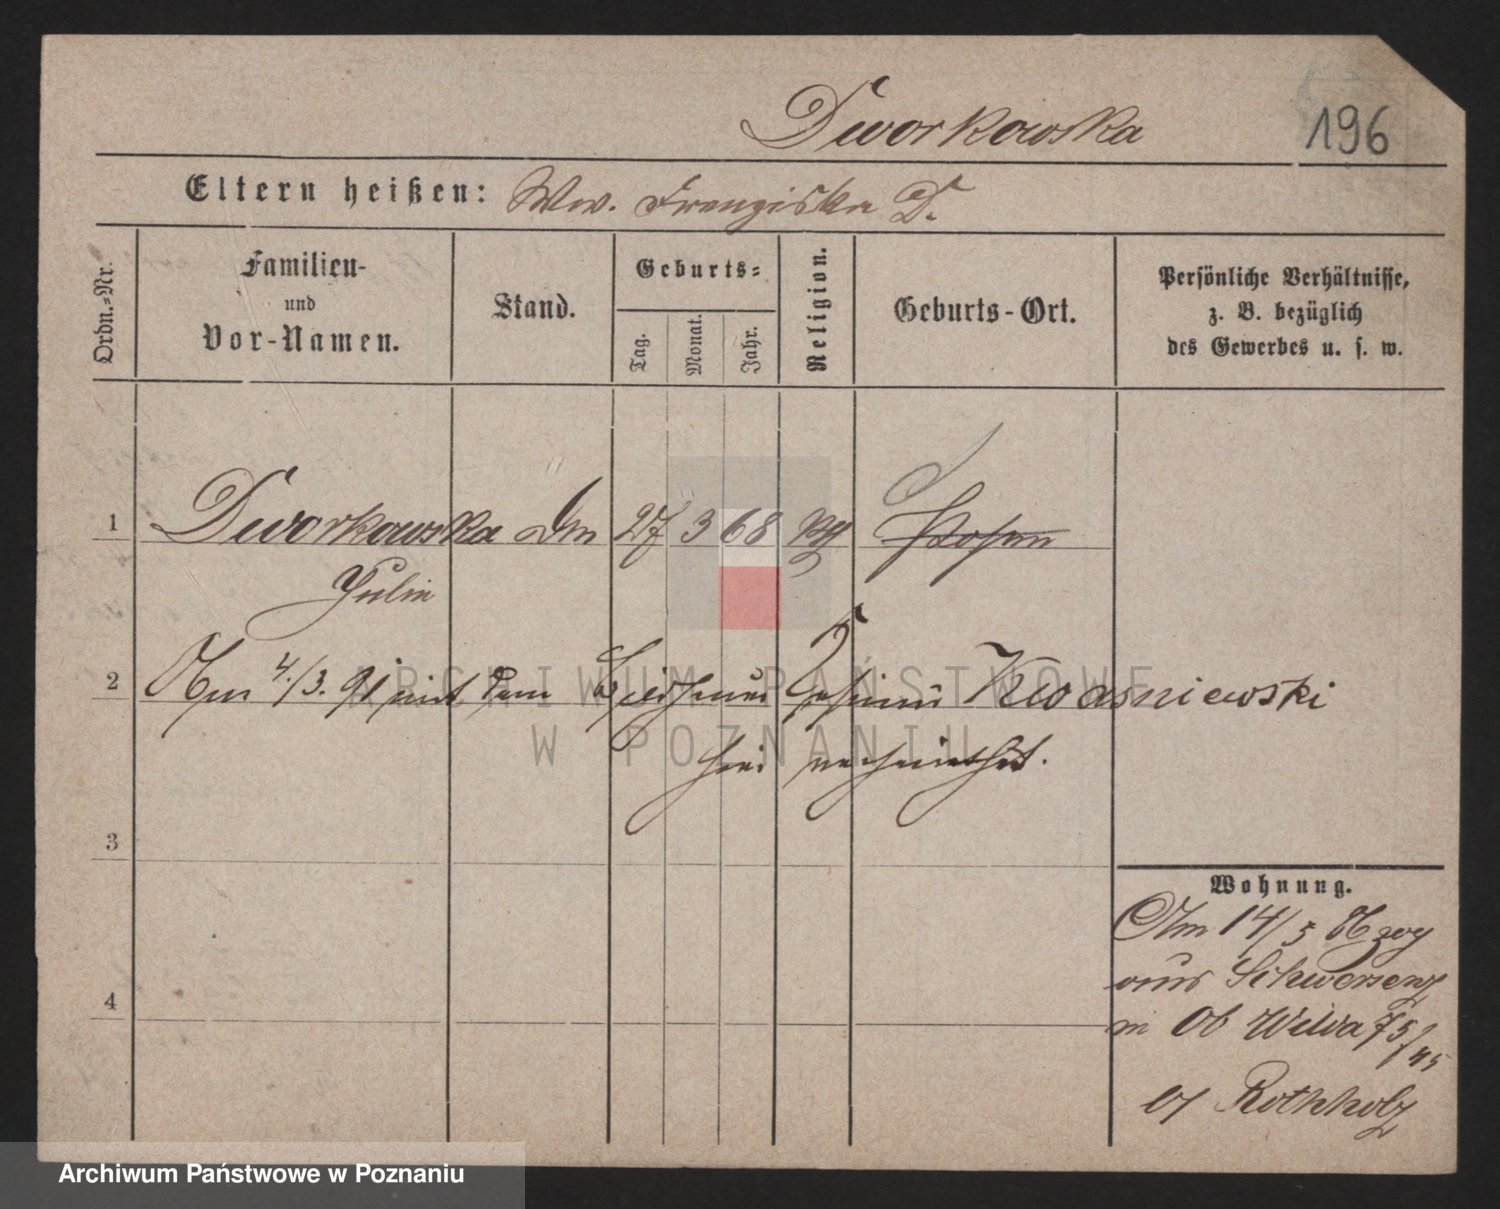 Dworkowska
196
Eltern heißen: Ww. Franziska D.
Ordn.-Nr.
Familien-
und
Vor-Namen.
Stand.
Geburts-
Tag.
Monat.
Jahr.
Religion.
Geburts-Ort.
Persönliche Verhältnisse,
z. B. bezüglich
des Gewerbes u. s. w.
1 Dworkowska 27 3 68 Posen
Julie
2 Am 4./3. 91 mit dem Kwasniewski
hier verheirathet.
3
4
Wohnung.
Am 14/5 Azog
aus Schwersenz
n Ob Wilda 75/
b/ Rothholz
ARCHIWUM PAŃSTWOWE
W POZNANIU
Archiwum Państwowe w Poznaniu